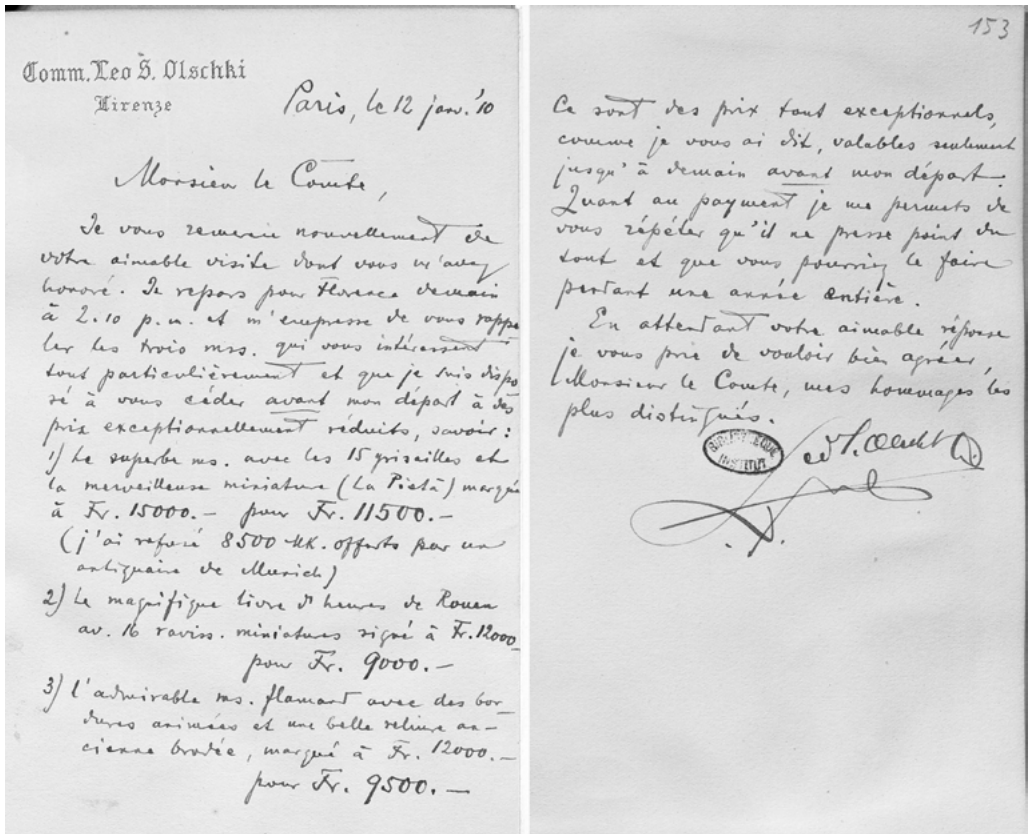 Comm. Leo S. Olschki
Firenze
Paris, le 12 janv. '10
Monsieur le Comte,
Je vous remercie nouvellement de
votre aimable visite dont vous m'avez
honoré. Je repars pour Florence demain
à 2.10 p.m. et m'empresse de vous rappe
ler les trois mss. qui vous intéressent
tout particulièrement et que je suis dispo
sé à vous céder avant mon départ à des
prix exceptionnellement réduits, savoir:
1) Le superbe ms. avec les 15 grisailles et
la merveilleuse miniature (La Pietà) marqué
à Fr. 15000.— pour Fr. 11500.—
(j'ai refusé 8500 Mk. offerts par un
antiquaire de Munich)
2) Le magnifique livre d'heures de Rouen
av. 16 raviss. miniatures signé à Fr. 12000
pour Fr. 9000.—
3) l'admirable ms. flamand avec des bor_
dures animées et une belle reliure an-
cienne brodée, marqué à Fr. 12000.—
pour Fr. 9500.—
153
Ce sont des prix tout exceptionnels,
comme je vous ai dit, valables seulement
jusqu'à demain avant mon départ.
Quant au payment je me permets de
vous répéter qu'il ne presse point du
tout et que vous pourriez le faire
pendant une année entière.
En attendant votre aimable réponse
je vous prie de vouloir bien agréer,
Monsieur le Comte, mes hommages les
plus distingués.
BIBLIOTHEQUE
INSTITUT